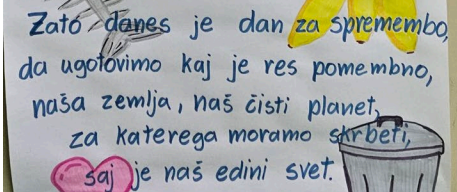 Zato danes je dan za spremembo,
da ugotovimo kaj je res pomembno,
naša zemlja, naš čisti planet,
za katerega moramo skrbeti,
saj je naš edini svet.